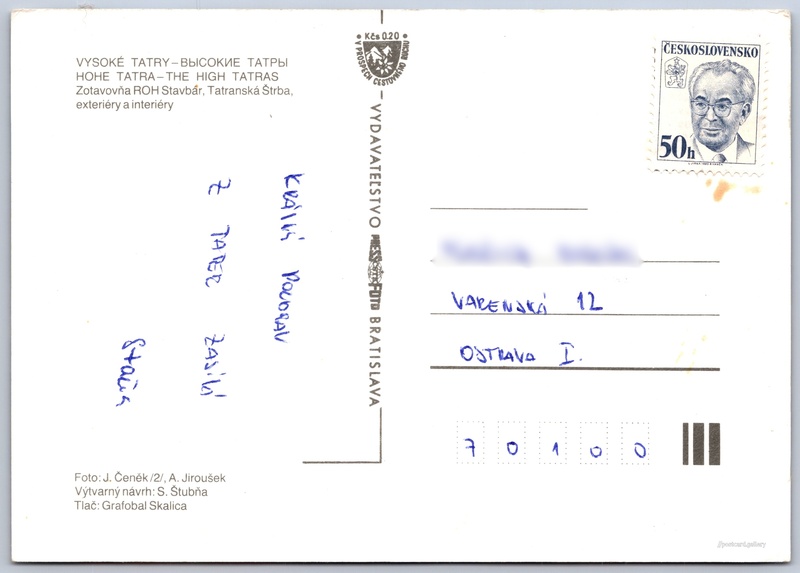 VYSOKÉ TATRY – ВЫСОКИЕ ТАТРЫ
HOHE TATRA – THE HIGH TATRAS
Zotavovňa ROH Stavbár, Tatranská Štrba,
exteriéry a interiéry
Kčs 0.20
V PROSPECH CESTOVNÉHO RUCHU
VYDAVATEĽSTVO PRESSFOTO BRATISLAVA
ČESKOSLOVENSKO
50h
POZDRAV
Z TATER ZASÍLÁ
VARENSKÁ 12
OSTRAVA I.
7 0 1 0 0
Foto: J. Čeněk /2/, A. Jiroušek
Výtvarný návrh: S. Štubňa
Tlač: Grafobal Skalica